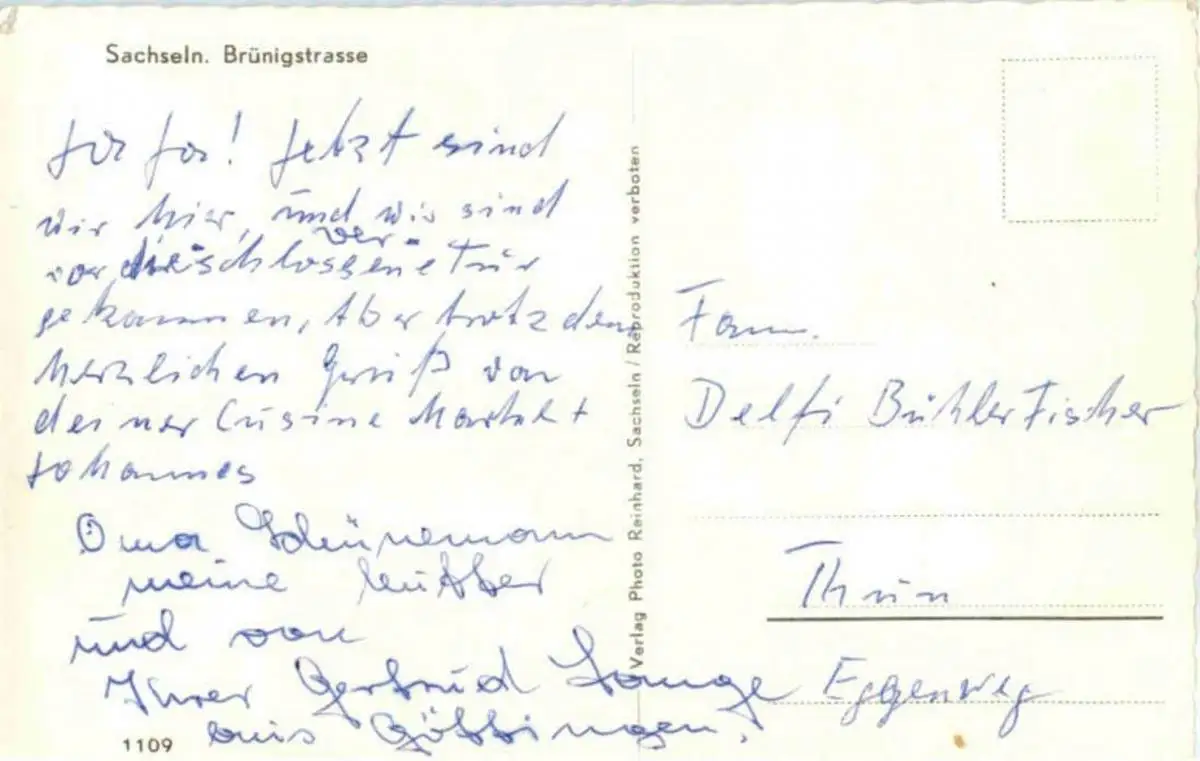 Sachseln. Brünigstrasse
Ja Ja! Jetzt sind
wir hier, und wir sind
ver-
vor die schlossene Tür
gekommen, Aber trotzdem
herzlichen Gruß von
deiner Cusine
Johannes
Oma Schünemann
meine Mutter
und von
Ihrer Gertrud Lange
aus Göttingen.
1109
Verlag Photo Reinhard, Sachseln / Reproduktion verboten
Fam.
Delfi Bühler Fischer
Thun
Eggenweg